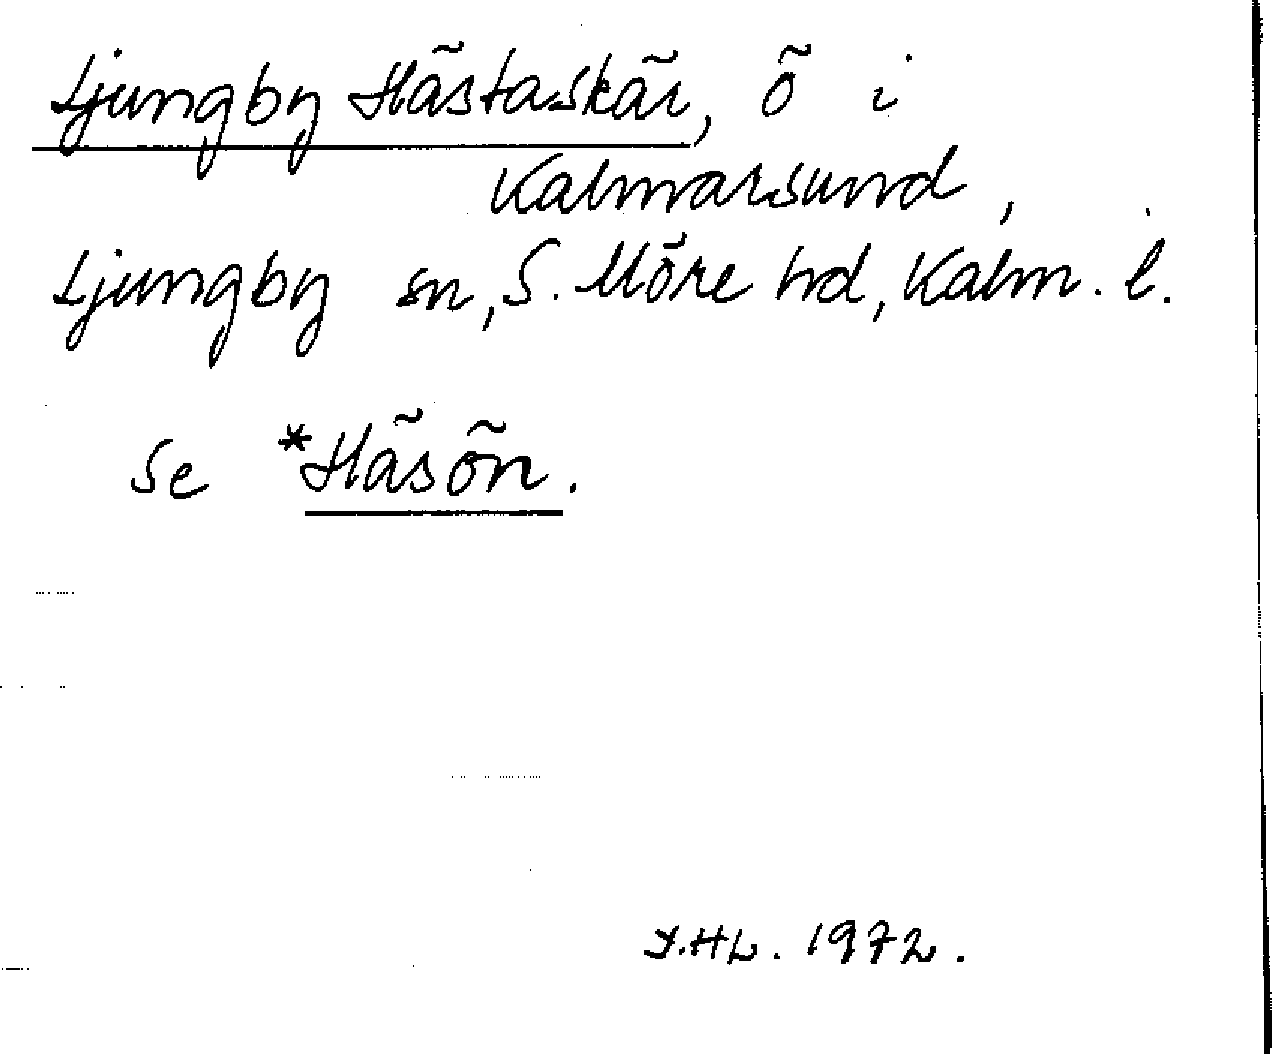 Ljungby Hästaskär, ö i
Kalmarsund,
Ljungby sn, S. Möre hd, Kalm. l.
Se *Häsön.
I.HL. 1972.